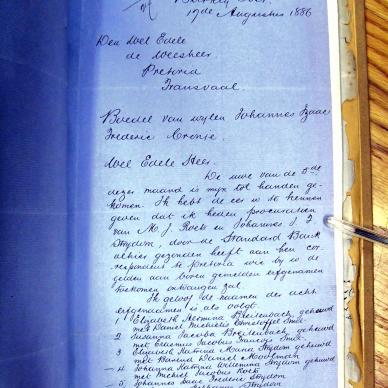 Barkly West
19de Augustus 1886
Den Wel Edele
de Weesheer
Pretoria
Transvaal
Boedel van wylen Johannes Izaac
Frederic Cronje
Wel Edele Heer.
De uwe van de 5de
dezer maand is myn tot handen ge-
komen. Ik hebt de eer u te kennen
geven dat ik heden procuratien
van M. J. Roets en Johannes J. F.
Strydom, door de Standard Bank
alhier gezonden heeft aan hen cor-
respondent te Pretoria wie by u de
gelden aan boven gemelden erfgenamen
toekomen ontvangen zal.
Ik geloof de namen der acht
erfgenamen is als volgt.
1 Elizabeth Breitenbach, gehuwd
met Daniel Michiel
2 Susanna Jacoba Breitenbach, gehuwd
met Erasmus Jacobus Francois
3 Elizabeth Katrina Maria Strydom gehuwd
met Daniel Moolman
4 Johanna Katrina Willemina Strydom gehuwd
met Michiel Jacobus Roets
5 Johannes Izaac Frederic Strydom
Strydom